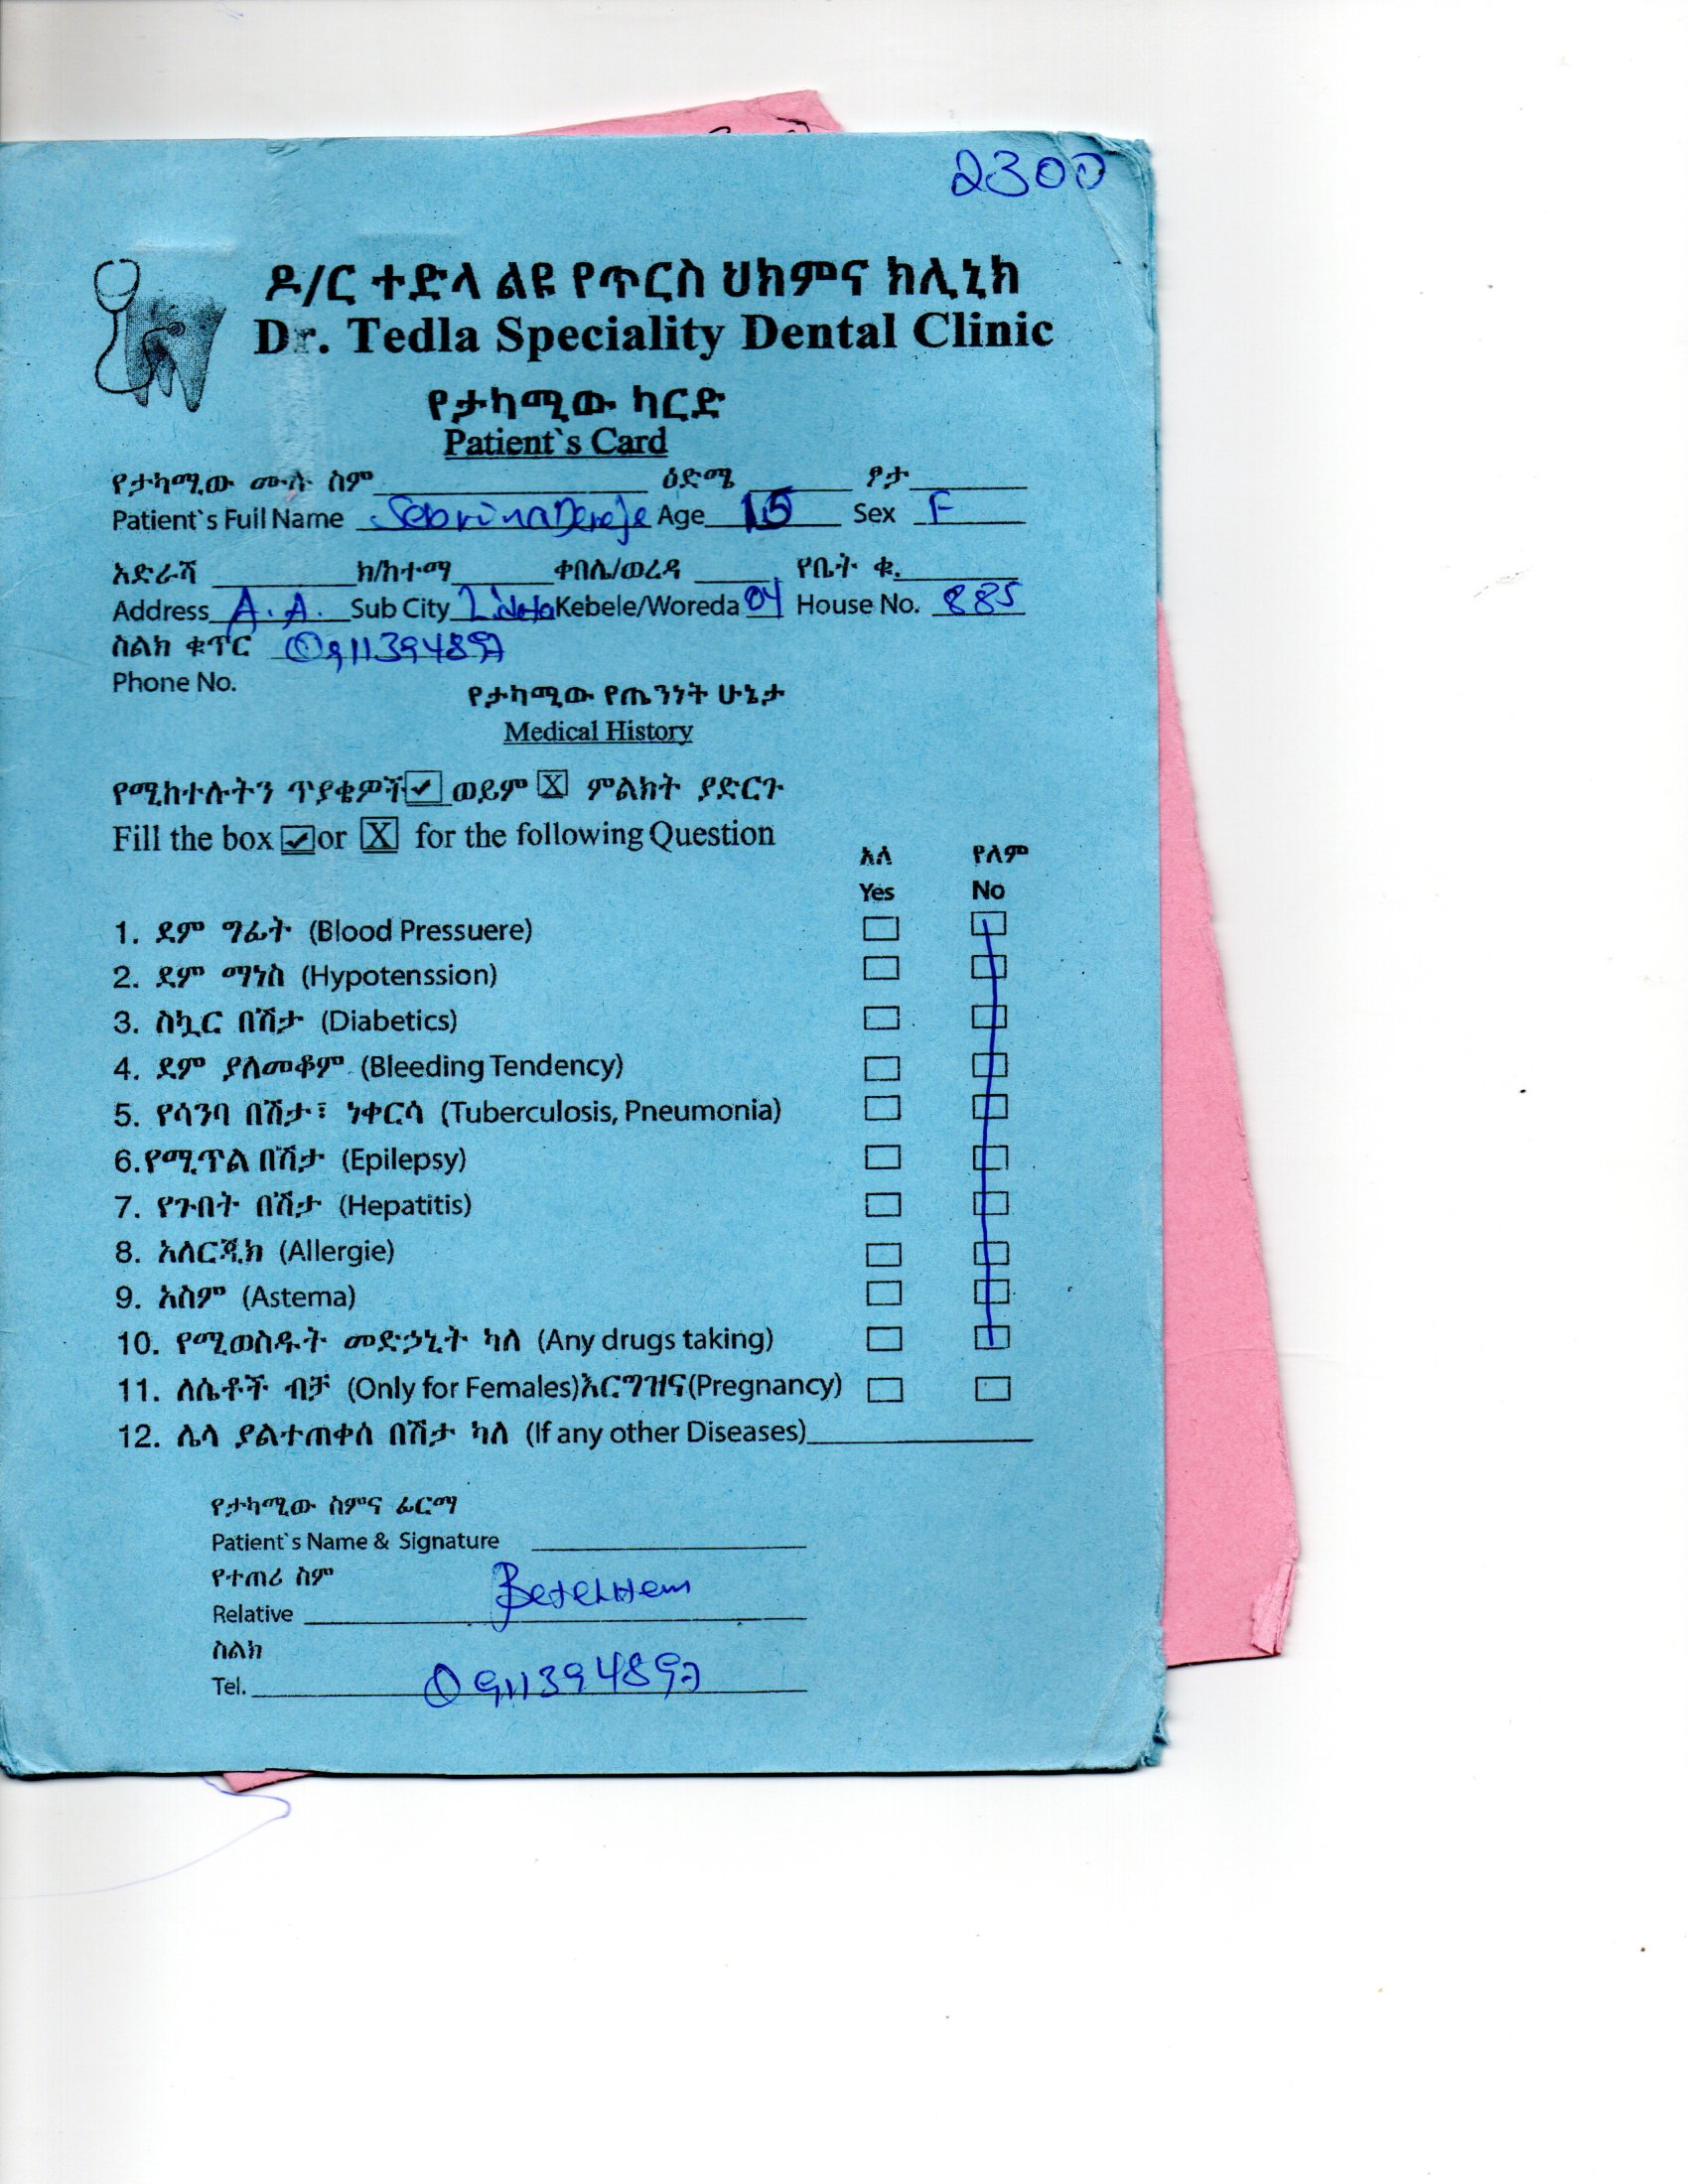 2300
ዶ/ር ተድላ ልዩ የጥርስ ህክምና ክሊኒክ
Dr. Tedla Speciality Dental Clinic
የታካሚው ካርድ
Patient`s Card
የታካሚው ሙሉ ስም ዕድሜ ፆታ
Patient`s Full Name Sebrina Dereje Age 15 Sex F
አድራሻ ክ/ከተማ ቀበሌ/ወረዳ የቤት ቁ.
Address A.A. Sub City Lideta Kebele/Woreda 04 House No. 885
ስልክ ቁጥር 0911394897
Phone No.
የታካሚው የጤንነት ሁኔታ
Medical History
የሚከተሉትን ጥያቄዎች ✓ ወይም X ምልክት ያድርጉ
Fill the box ✓ or X for the following Question
አለ የለም
Yes No
1. ደም ግፊት (Blood Pressuere)
2. ደም ማነስ (Hypotenssion)
3. ስኳር በሽታ (Diabetics)
4. ደም ያለመቆም (Bleeding Tendency)
5. የሳንባ በሽታ፣ ነቀርሳ (Tuberculosis, Pneumonia)
6.የሚጥል በሽታ (Epilepsy)
7. የጉበት በሽታ (Hepatitis)
8. አለርጂክ (Allergie)
9. አስም (Astema)
10. የሚወስዱት መድኃኒት ካለ (Any drugs taking)
11. ለሴቶች ብቻ (Only for Females)እርግዝና(Pregnancy)
12. ሌላ ያልተጠቀሰ በሽታ ካለ (If any other Diseases)
የታካሚው ስምና ፊርማ
Patient`s Name & Signature
የተጠሪ ስም
Relative Betelhem
ስልክ
Tel. 0911394897